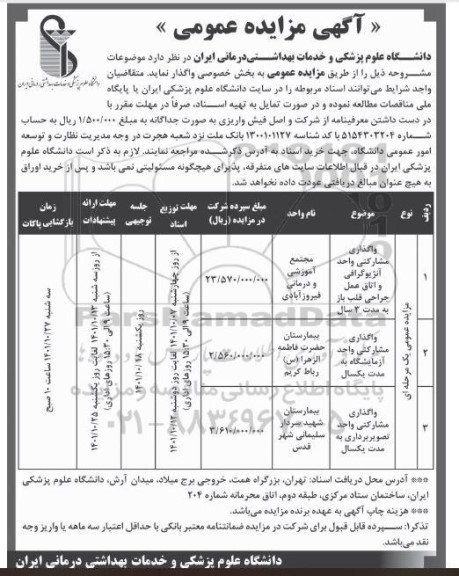 « آگهی مزایده عمومی »
دانشگاه علوم پزشکی و خدمات بهداشتی‌درمانی ایران
دانشگاه علوم پزشکی و خدمات بهداشتی‌درمانی ایران در نظر دارد موضوعات
مشروحه ذیل را از طریق مزایده عمومی به بخش خصوصی واگذار نماید. متقاضیان
واجد شرایط می‌توانند اسناد مربوطه را در سایت دانشگاه علوم پزشکی ایران یا پایگاه
ملی مناقصات مطالعه نموده و در صورت تمایل به تهیه اسناد، صرفاً در مهلت مقرر با
در دست داشتن معرفینامه از شرکت و اصل فیش واریزی به صورت جداگانه به مبلغ ۱/۵۰۰/۰۰۰ ریال به حساب
شماره ۵۱۵۴۳۰۳۲۰۴ با کد شناسه ۱۳۰۰۱۰۱۱۲۷ بانک ملت نزد شعبه هجرت در وجه مدیریت نظارت و توسعه
امور عمومی دانشگاه، جهت خرید اسناد به آدرس ذکرشده مراجعه نمایند. لازم به ذکر است دانشگاه علوم
پزشکی ایران در قبال اطلاعات سایت های متفرقه، پذیرای هیچگونه مسئولیتی نمی باشد و پس از خرید اوراق
به هیچ عنوان مبالغ دریافتی عودت داده نخواهد شد.
ردیف
نوع
موضوع
نام واحد
مبلغ سپرده شرکت
در مزایده (ریال)
مهلت توزیع
اسناد
جلسه
توجیهی
مهلت ارائه
پیشنهادات
زمان
بازگشایی پاکات
۱
واگذاری
مشارکتی واحد
آنژیوگرافی
و اتاق عمل
جراحی قلب باز
به مدت ۳ سال
مجتمع
آموزشی
و درمانی
فیروزآبادی
۲۳/۵۷۰/۰۰۰/۰۰۰
۲
واگذاری
مشارکتی واحد
آزمایشگاه به
مدت یکسال
بیمارستان
حضرت فاطمه
الزهرا (س)
رباط کریم
۲/۵۶۰/۰۰۰/۰۰۰
۳
واگذاری
مشارکتی واحد
تصویربرداری به
مدت یکسال
بیمارستان
شهید سردار
سلیمانی شهر
قدس
۳/۶۱۰/۰۰۰/۰۰۰
مزایده عمومی یک مرحله ای
از روز چهارشنبه ۱۴۰۱/۱۰/۰۷ لغایت روز دوشنبه ۱۴۰۱/۱۰/۱۲
(ساعت ۹ الی ۱۵/۳۰ روزهای اداری)
روز یکشنبه ۱۴۰۱/۱۰/۱۸
از روز سه شنبه ۱۴۰۱/۱۰/۱۳ لغایت روز یکشنبه ۱۴۰۱/۱۰/۲۵
(ساعت ۹ الی ۱۵/۳۰ روزهای اداری)
سه شنبه ۱۴۰۱/۱۰/۲۷ ساعت ۱۰ صبح
ParsNamadData
پایگاه اطلاع رسانی مناقصه و مزایده
۰۲۱-۸۸۳۴۹۶۷۰-۵
*** آدرس محل دریافت اسناد: تهران، بزرگراه همت، خروجی برج میلاد، میدان آرش، دانشگاه علوم پزشکی
ایران، ساختمان ستاد مرکزی، طبقه دوم، اتاق محرمانه شماره ۲۰۴
*** هزینه چاپ آگهی به عهده برنده مزایده می‌باشد.
تذکر۱: سپرده قابل قبول برای شرکت در مزایده ضمانتنامه معتبر بانکی با حداقل اعتبار سه ماهه یا واریز وجه
نقد می‌باشد.
دانشگاه علوم پزشکی و خدمات بهداشتی درمانی ایران